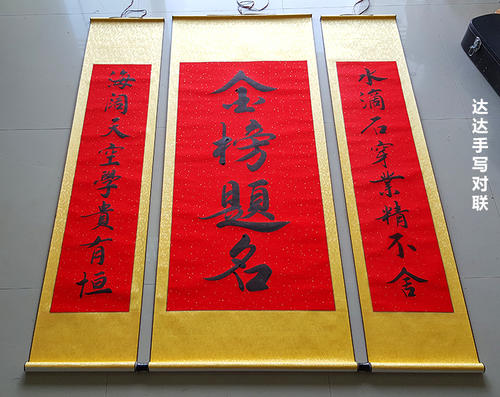 水滴石穿業精不舍
金榜題名
海阔天空學貴有恒
达达手写对联